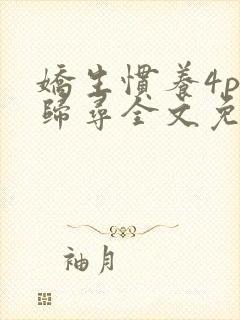 嬌生慣養4p
歸尋全文免
袖月